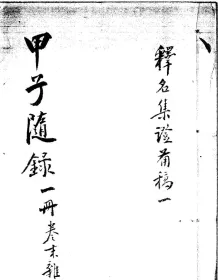 釋名集證前稿一
甲子隨錄一冊卷末雜